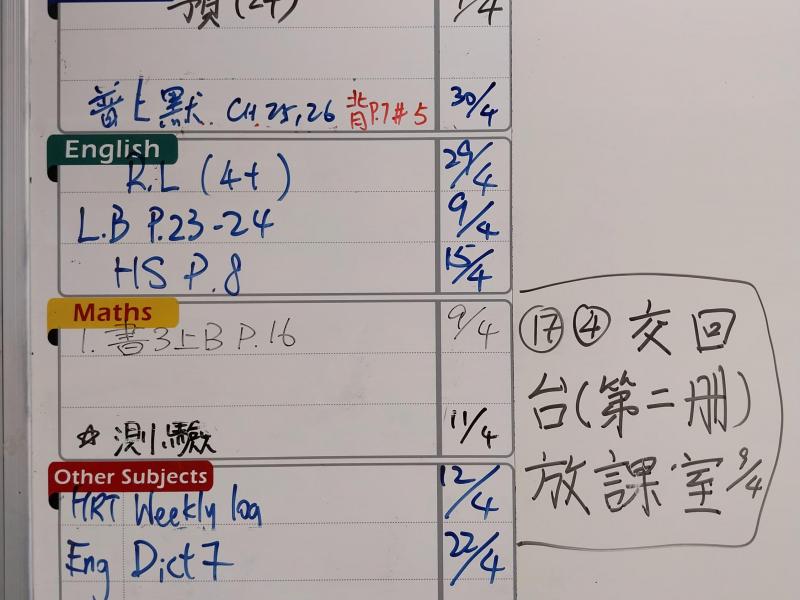 預(24) 1/4
普上默 CH 25,26 背P.7#5 30/4
English
R.L (4+) 29/4
L.B P.23-24 9/4
HS P.8 15/4
Maths
1. 書3上B P.16 9/4
☆ 測驗 11/4
Other Subjects
HRT Weekly log 12/4
Eng Dict 7 22/4
⑰ ④ 交回
台(第二册)
放課室 9/4